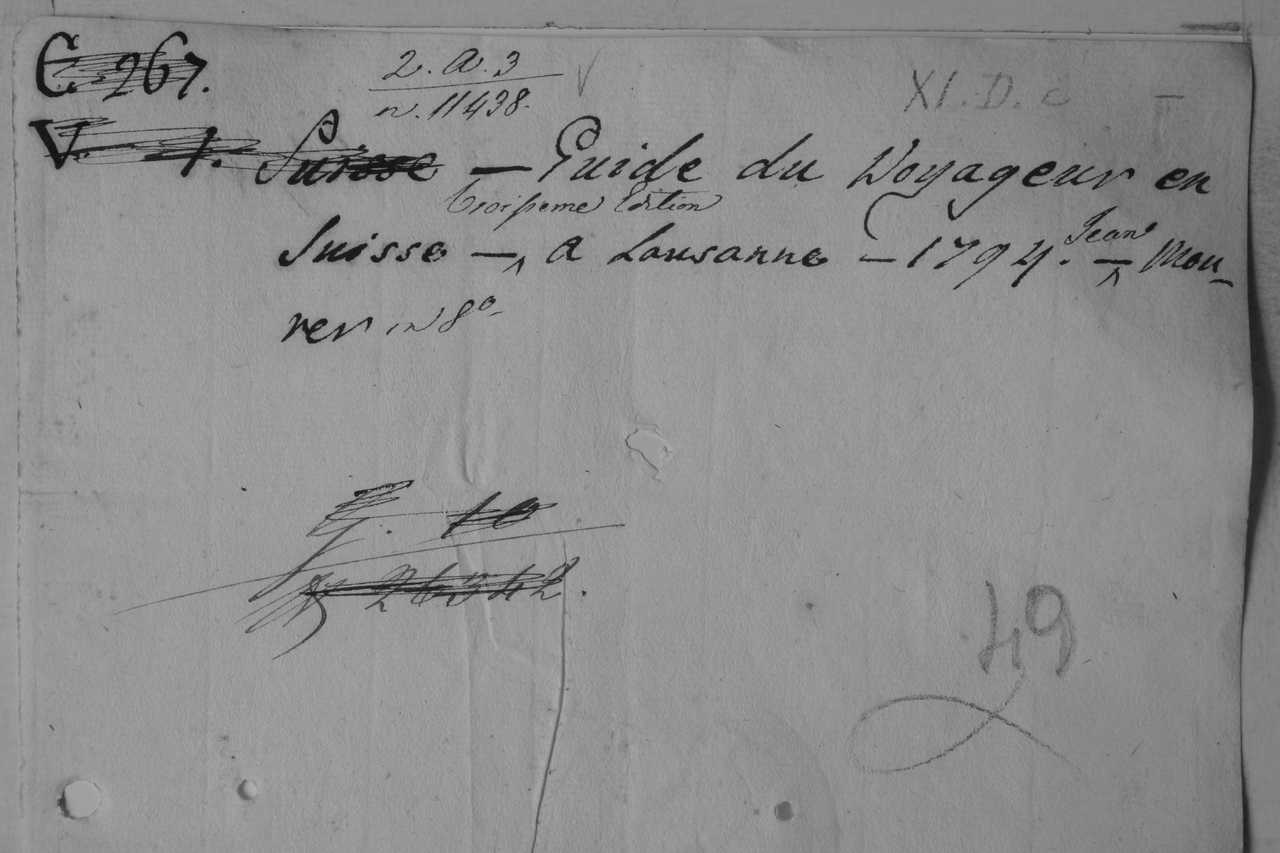 E. 267.
2. a. 3
n. 11438.
XI. D.
V. 1. Suisse — Guide du Voyageur en
troisieme Edition
Suisse — a Lausanne — 1794. — Jean Mou-
rer in 8°
G. 10
26342.
49